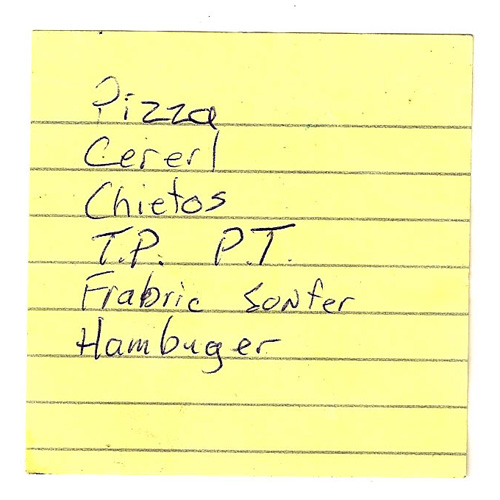 Pizza
Cererl
Chietos
T.P. P.T.
Frabric sonfer
Hambuger